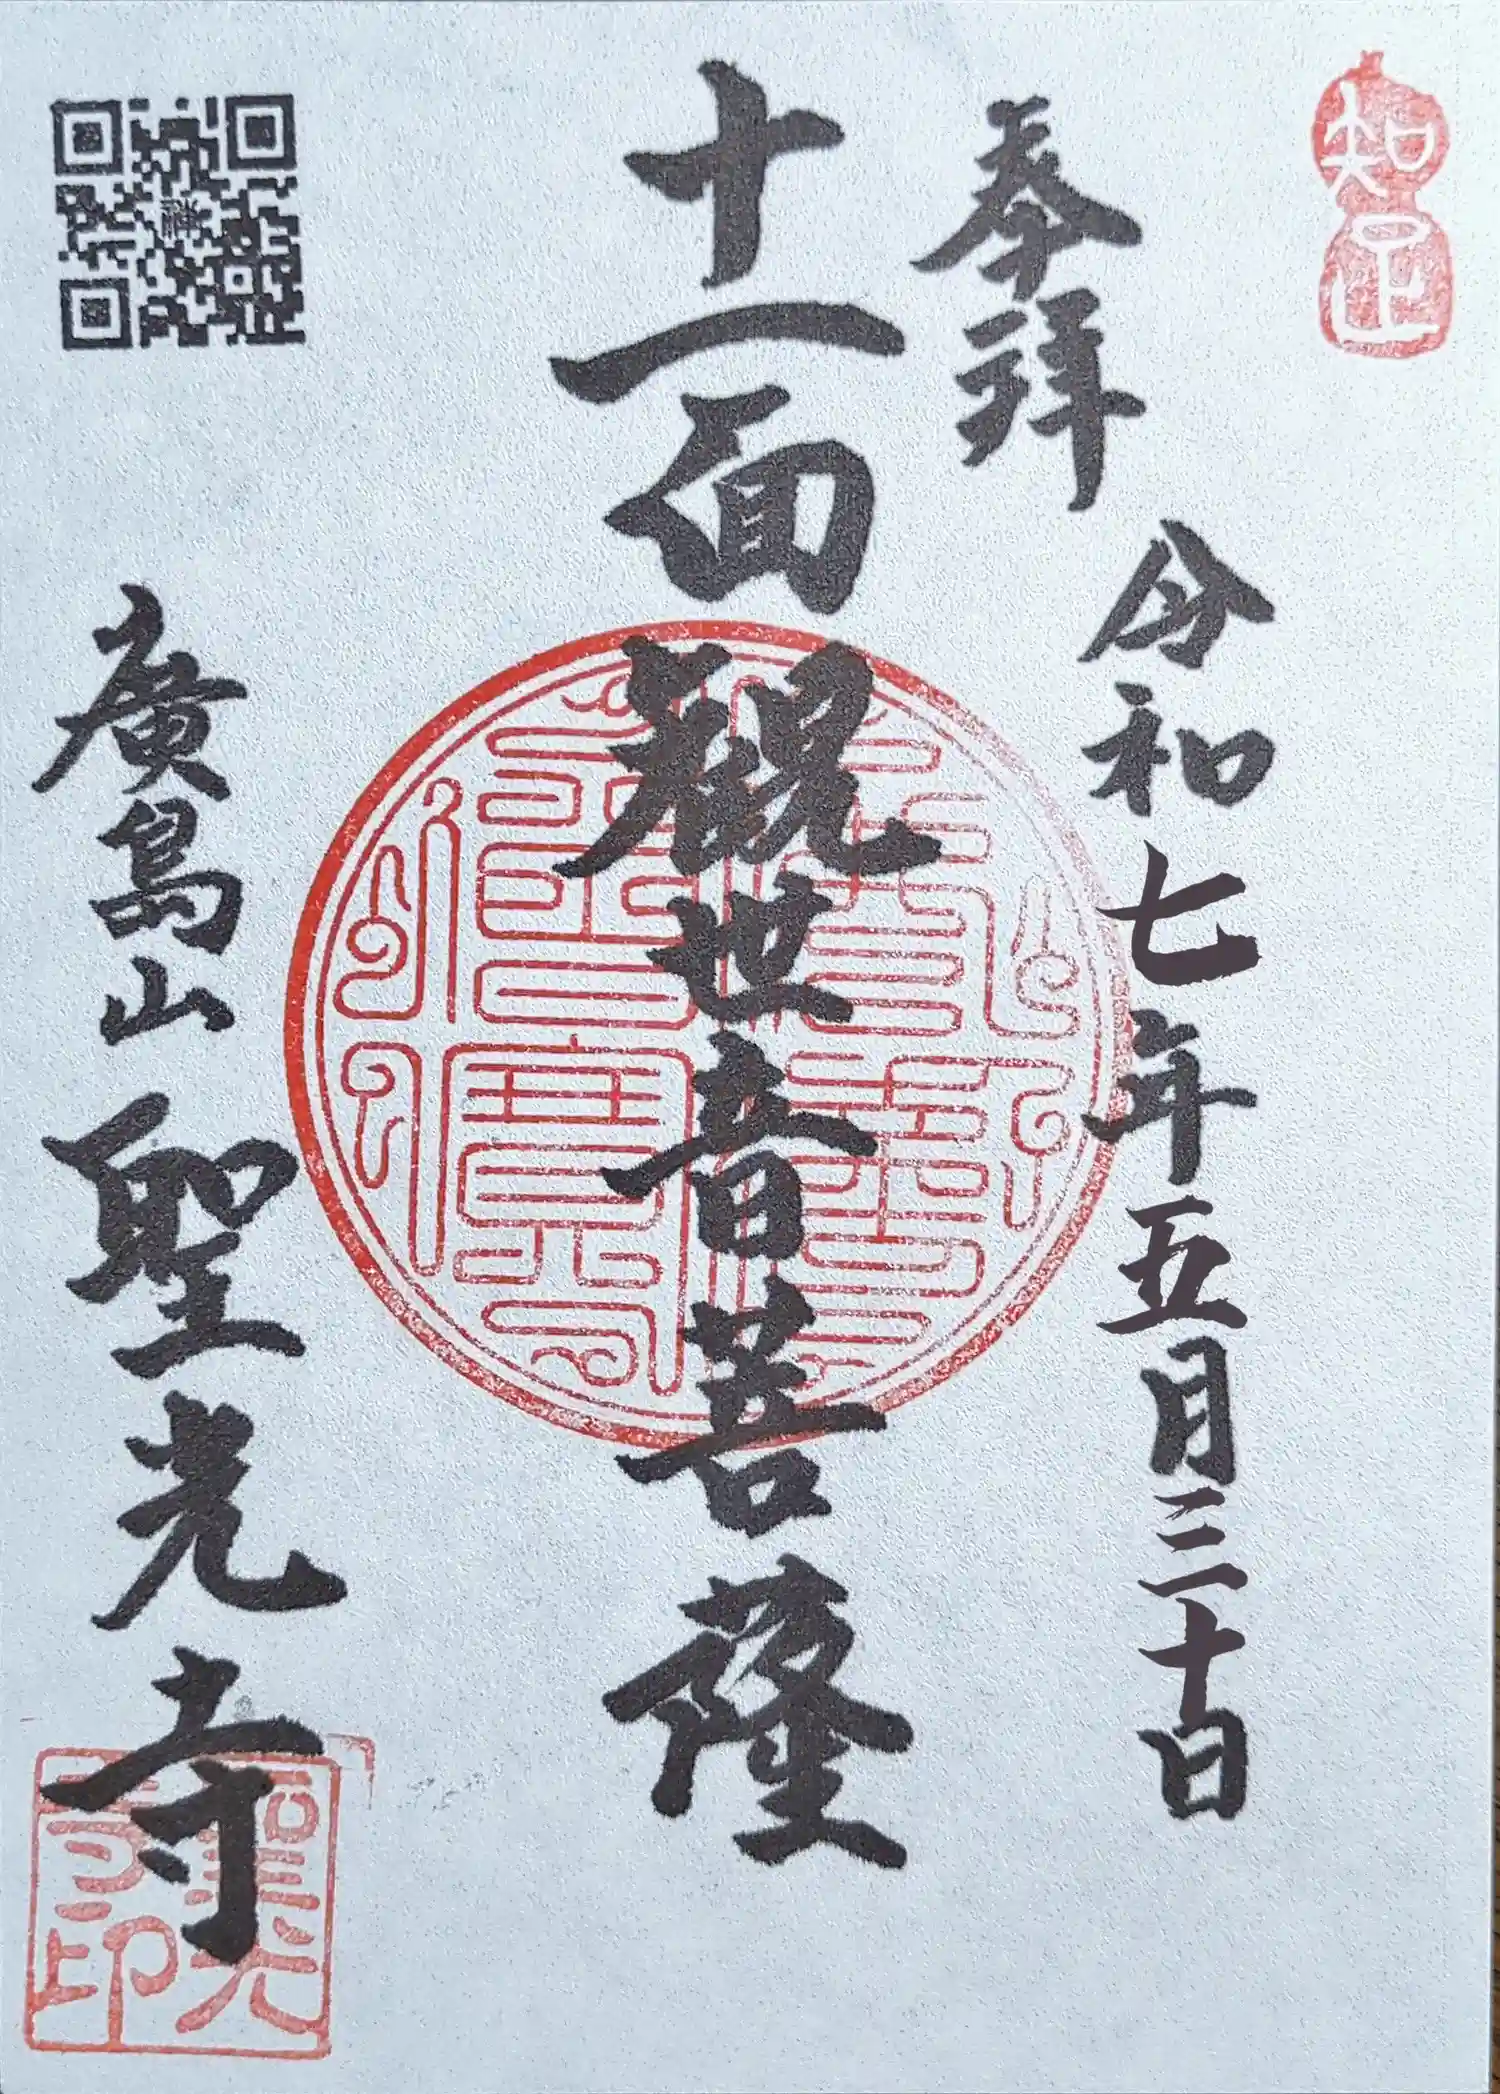 知足
奉拝
令和七年五月三十日
十一面観世音菩薩
廣島山
聖光寺
聖光寺印